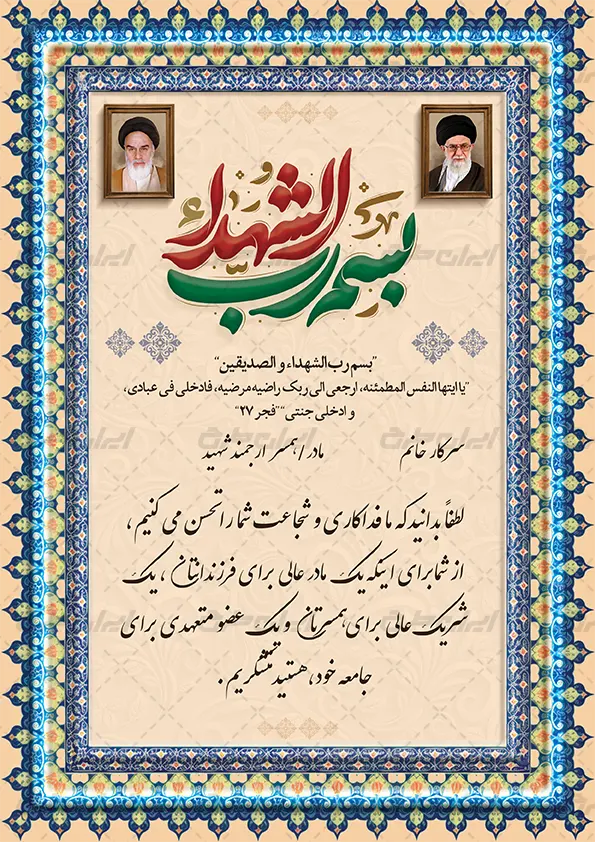 بسم رب الشهداء
"بسم رب الشهداء و الصدیقین"
"یا ایتها النفس المطمئنه، ارجعی الی ربک راضیه مرضیه، فادخلی فی عبادی،
و ادخلی جنتی" "فجر ۲۷"
سرکار خانم مادر / همسر ارجمند شهید
لطفاً بدانید که ما فداکاری و شجاعت شما را تحسن می کنیم ،
از شما برای اینکه یک مادر عالی برای فرزندانتان ، یک
شریک عالی برای همسرتان و یک عضو متعهدی برای
جامعه خود ، هستید متشکریم .